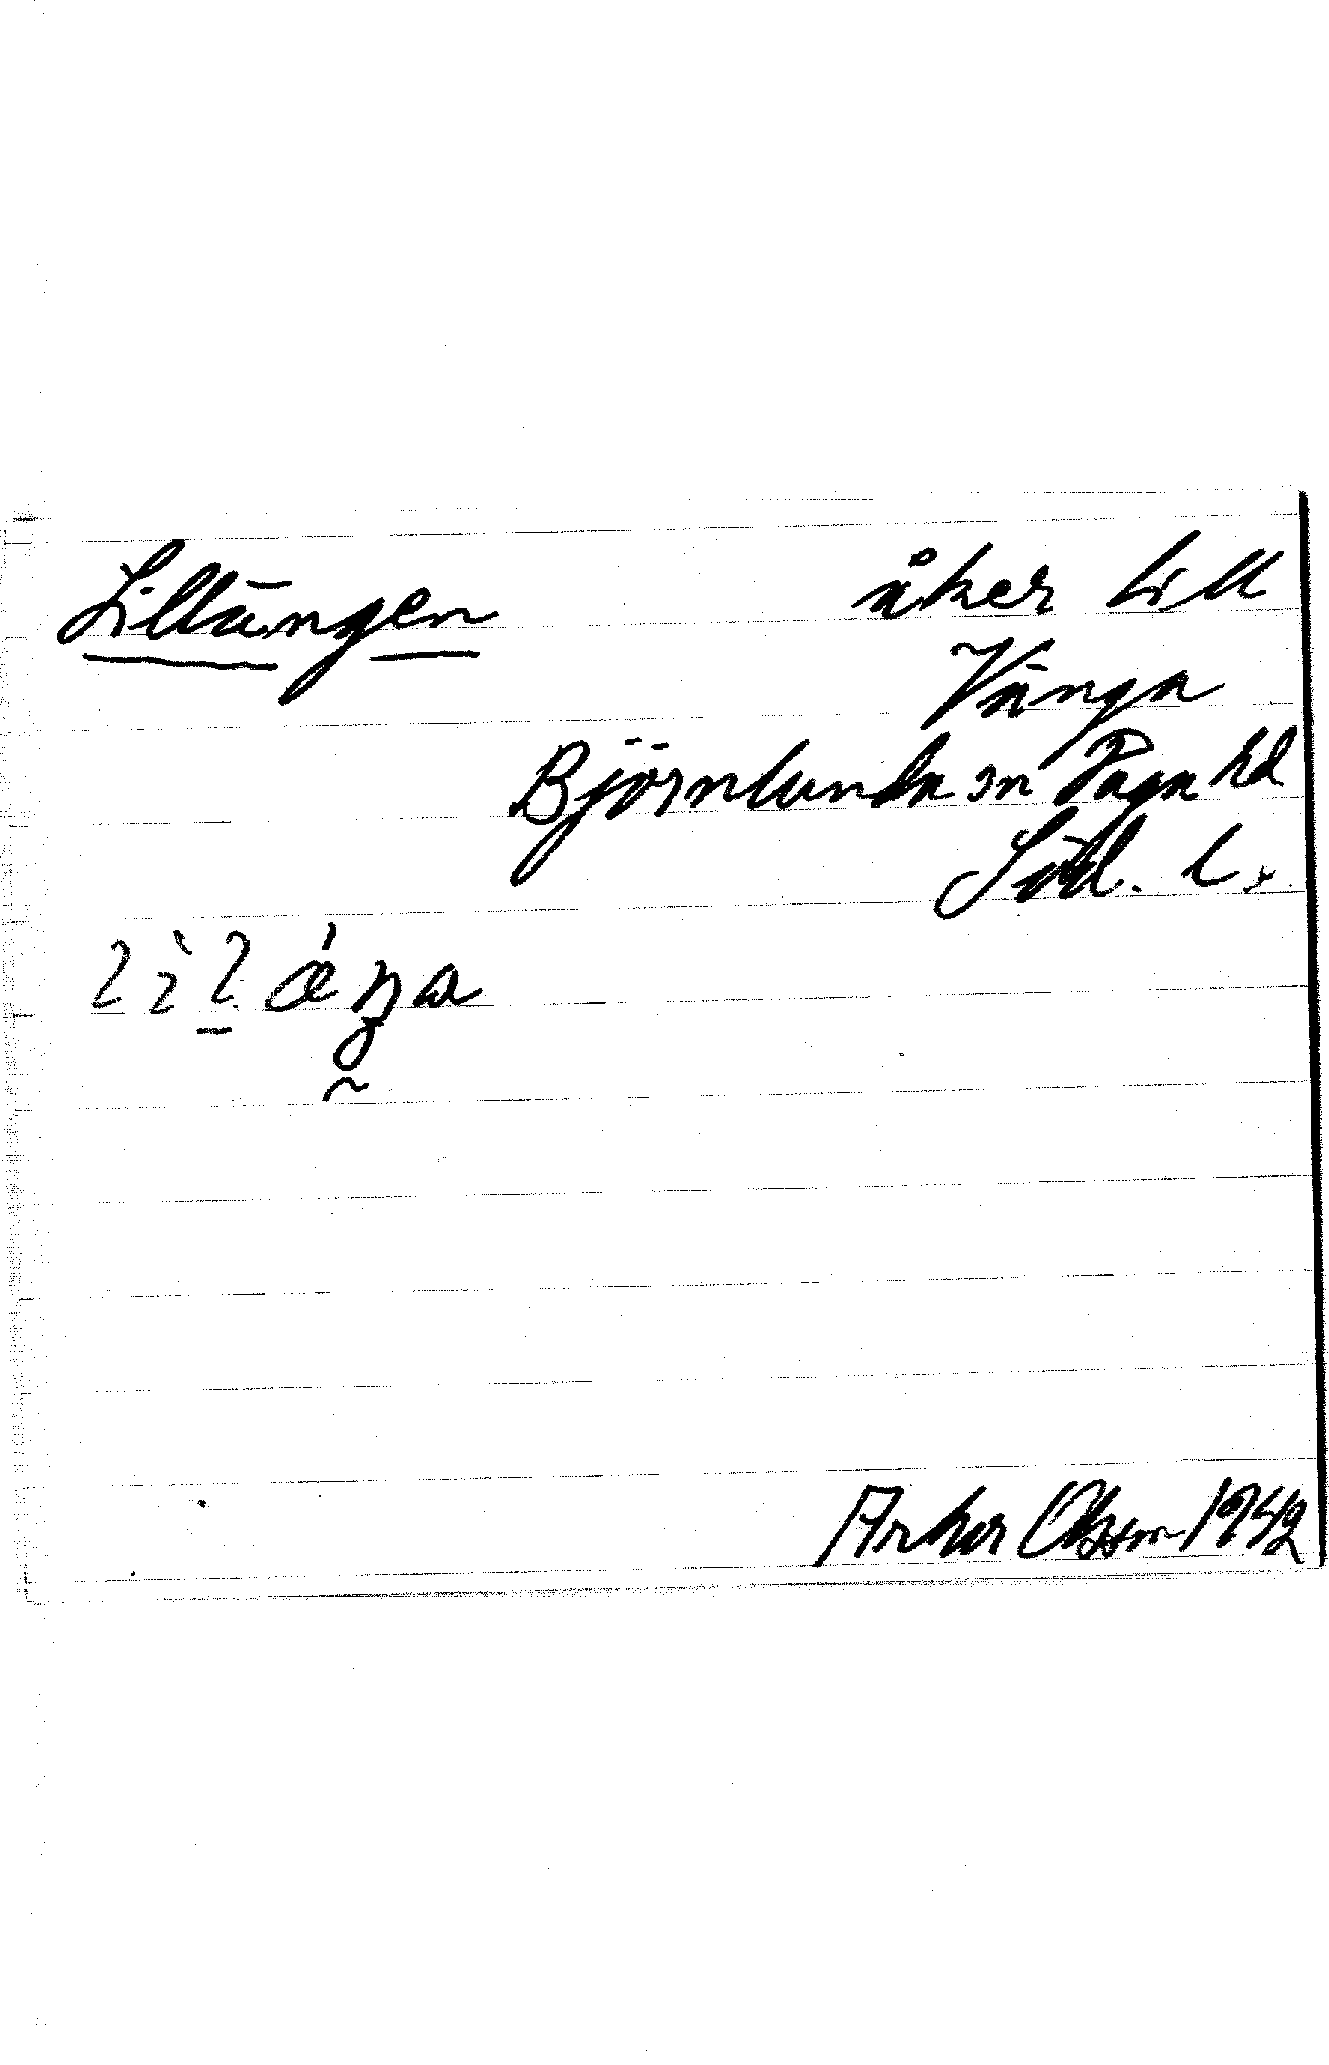 Lillängen
åker till
Vänga
Björnlunda sn Daga hd
Söd. l.
lìl ǽŋa
Arthur Olsson 1942